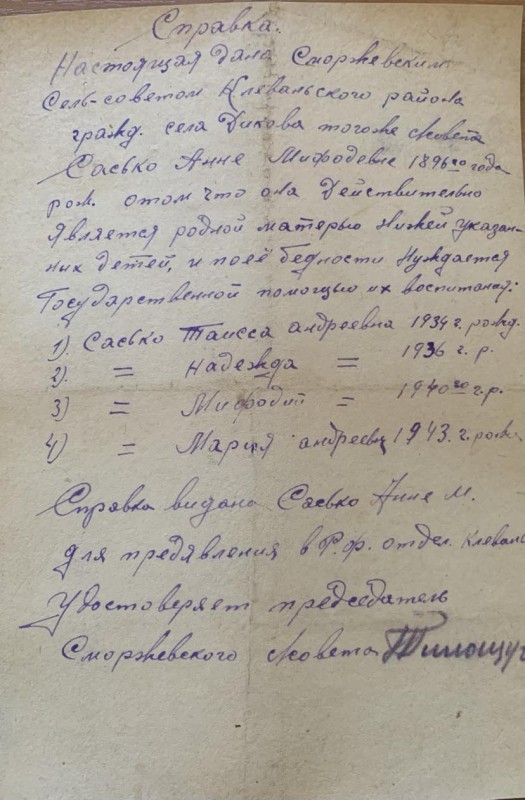 Справка.
Настоящая дана Сморжевским
Сель-советом Клевальского района
гражд. села Дикова тогоже /совета
Сасько Анне Мифодевне 1896го года
рож. отом что она Действительно
является родной матерью Нижей указан-
них детей, и поеё бедности Нуждается
Государственной помощью их воспитания:
1). Сасько Таисса андреевна 1934 г. рожд.
2). = Надежда = 1936 г. р.
3) = Мифодий = 1940го г.р.
4) = Мария андреевн 1943. г. рожд.
Справка видана Сасько Анне М.
для предявления в Р.ф. отдел. Клевань
Удостоверяет председатель
Сморжевского /совета